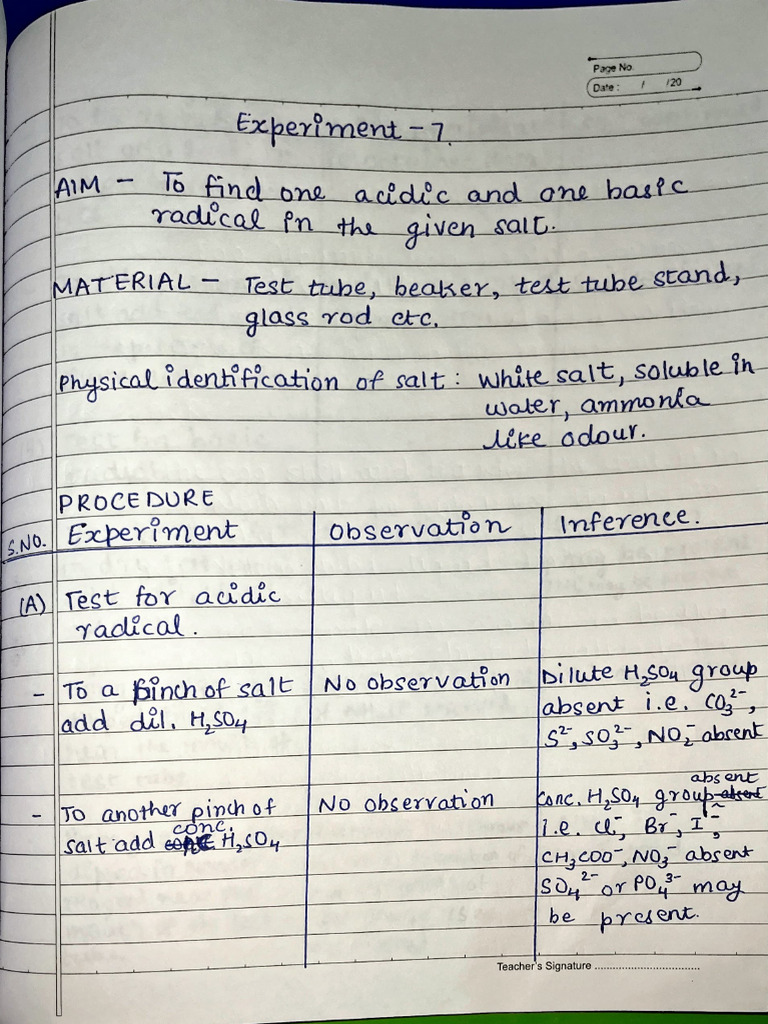 Page No.
Date : / /20
Experiment - 7.
AIM - To find one acidic and one basic
radical in the given salt.
MATERIAL - Test tube, beaker, test tube stand,
glass rod etc.
Physical identification of salt : White salt, soluble in
water, ammonia
like odour.
PROCEDURE
S.NO. Experiment Observation Inference.
(A) Test for acidic
radical.
- To a pinch of salt
add dil. H₂SO₄
No observation
Dilute H₂SO₄ group
absent i.e. CO₃²⁻,
S²⁻, SO₃²⁻, NO₂⁻ absent
- To another pinch of
salt add conc. H₂SO₄
No observation
Conc. H₂SO₄ group absent
i.e. Cl⁻, Br⁻, I⁻,
CH₃COO⁻, NO₃⁻ absent
SO₄²⁻ or PO₄³⁻ may
be present.
Teacher's Signature ..................................